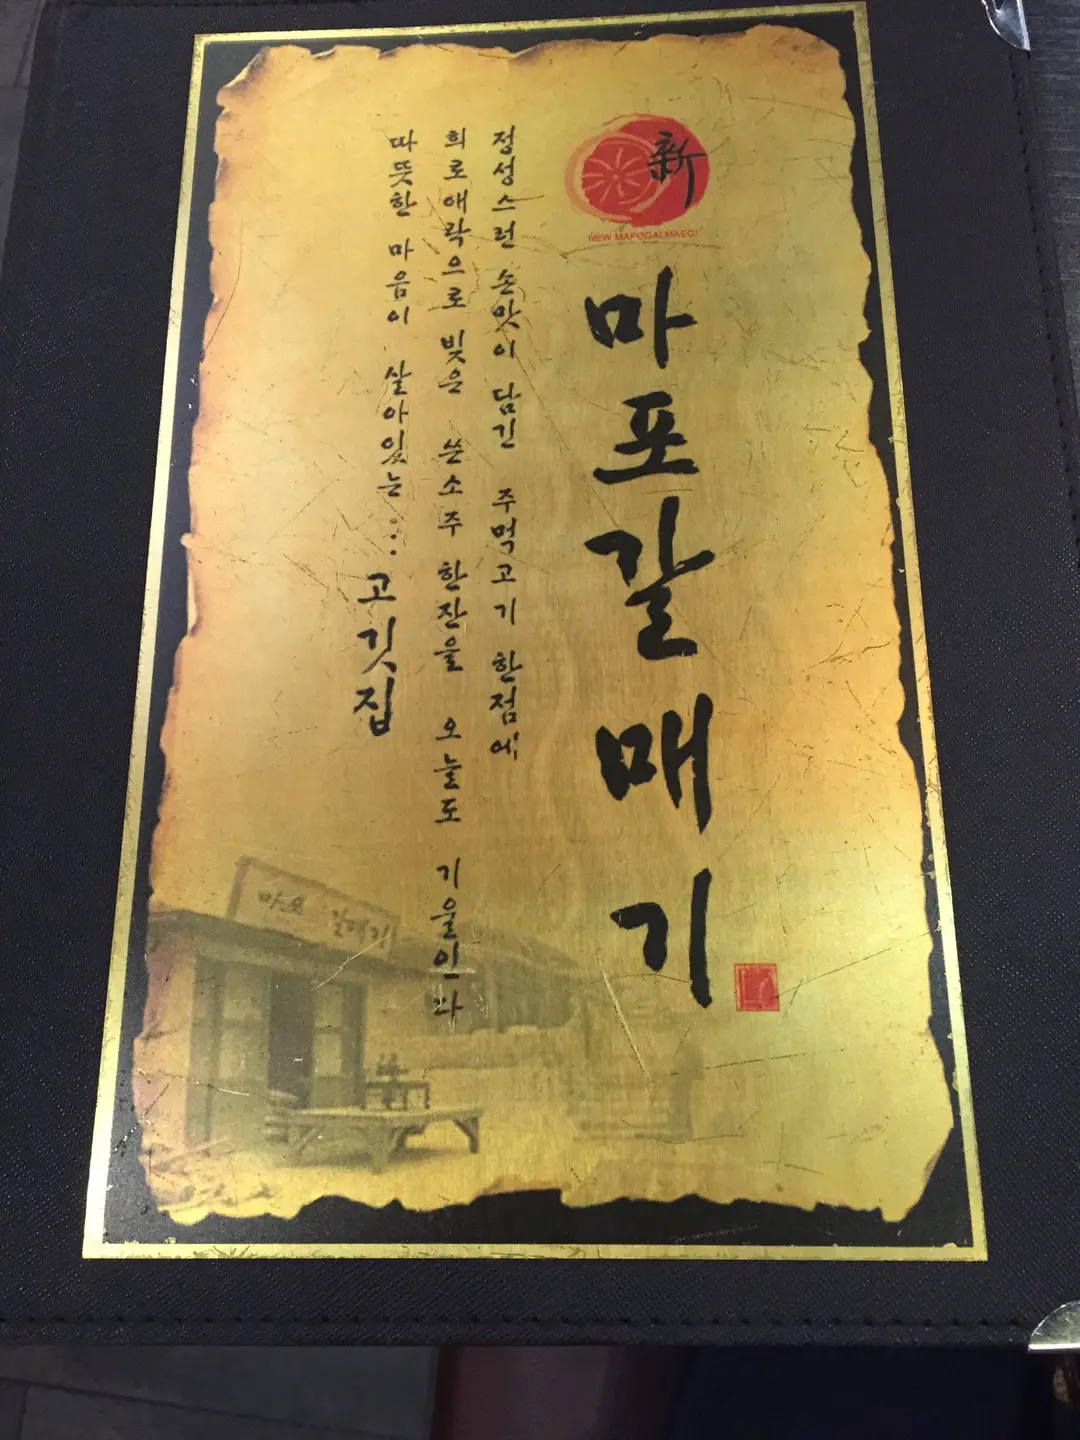 新
NEW MAPOGALMAEGI
마포갈매기
정성스런 손맛이 담긴 주먹고기 한점에
희로애락으로 빚은 쓴소주 한잔을 오늘도 기울인다
따뜻한 마음이 살아있는... 고깃집
마포 갈매기